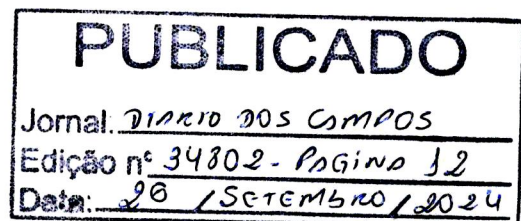 PUBLICADO
Jornal: DIARIO DOS CAMPOS
Edição nº 34802 - PAGINA 12
Data: 26 / SETEMBRO / 2024